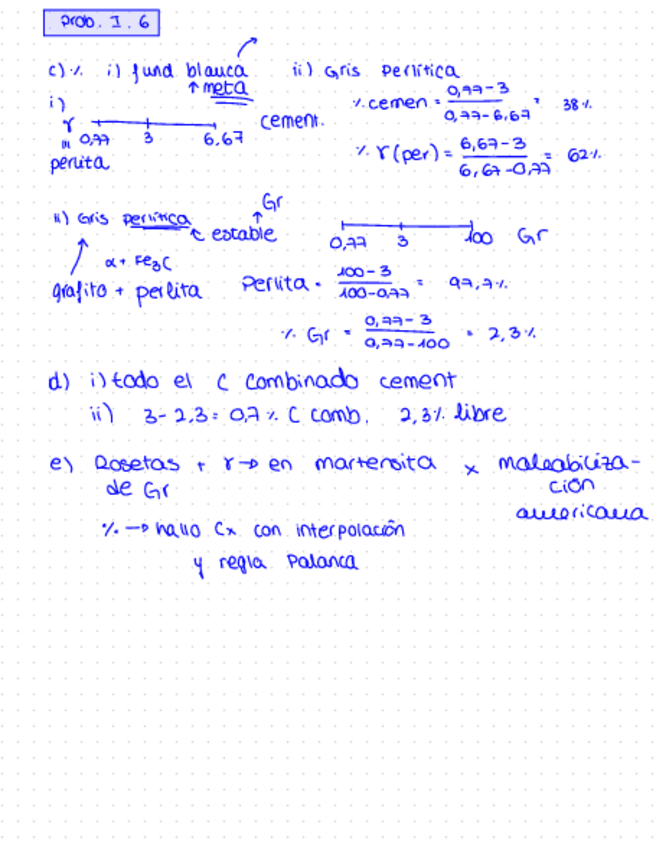 Prob. I. 6
c) % i) fund blanca ii) Gris Perlítica
↑ meta
i)
γ 0,77 3 6,67 cement.
perlita
% cemen = 0,77-3 / 0,77-6,67 = 38%
% γ (per) = 6,67-3 / 6,67-0,77 = 62%
ii) Gris perlítica ↖ estable ↑ Gr
0,77 3 100 Gr
α + Fe3C
grafito + perlita
Perlita = 100-3 / 100-0,77 = 97,7%
% Gr = 0,77-3 / 0,77-100 = 2,3%
d) i) todo el C combinado cement
ii) 3-2,3 = 0,7% C comb. 2,3% libre
e) Rosetas + γ → en martensita x maleabiliza-
de Gr ción
americana
% → hallo Cx con interpolación
y regla Palanca